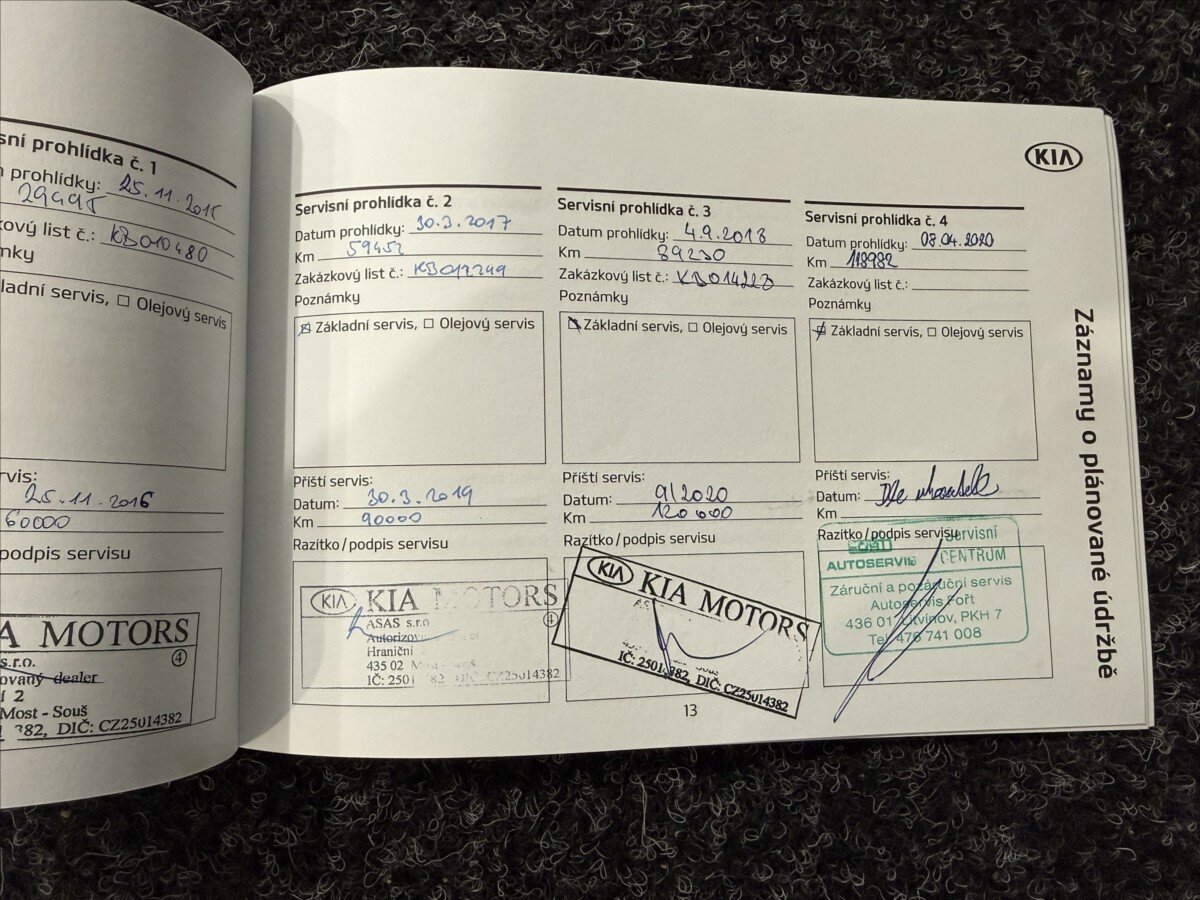 sní prohlídka č. 1
prohlídky: 25.11.2015
29495
kový list č.: KB010480
mky
ladní servis, ☐ Olejový servis
rvis:
25.11.2016
60000
podpis servisu
A MOTORS
s.r.o. ④
ovaný dealer
í 2
Most - Souš
382, DIČ: CZ25014382
Servisní prohlídka č. 2
Datum prohlídky: 30.3.2017
Km 59452
Zakázkový list č.: KB012249
Poznámky
☒ Základní servis, ☐ Olejový servis
Příští servis:
Datum: 30.3.2019
Km 90000
Razítko/podpis servisu
KIA KIA MOTORS
ASAS s.r.o. ④
Autorizov
Hraniční
435 02 Most - Souš
IČ: 2501 382 DIČ: CZ25014382
Servisní prohlídka č. 3
Datum prohlídky: 4.9.2018
Km 89230
Zakázkový list č.: KB014228
Poznámky
☒ Základní servis, ☐ Olejový servis
Příští servis:
Datum: 9/2020
Km 120000
Razítko/podpis servisu
KIA KIA MOTORS
AS
Souš
IČ: 2501 382, DIČ: CZ25014382
13
KIA
Servisní prohlídka č. 4
Datum prohlídky: 08.04.2020
Km 118982
Zakázkový list č.:
Poznámky
☒ Základní servis, ☐ Olejový servis
Příští servis:
Datum: Dle
Km
Razítko/podpis servisu
Servisní
AUTOSERVIS CENTRUM
Záruční a pozáruční servis
Autoservis Fořt
436 01 Litvínov, PKH 7
Tel. 476 741 008
Záznamy o plánované údržbě